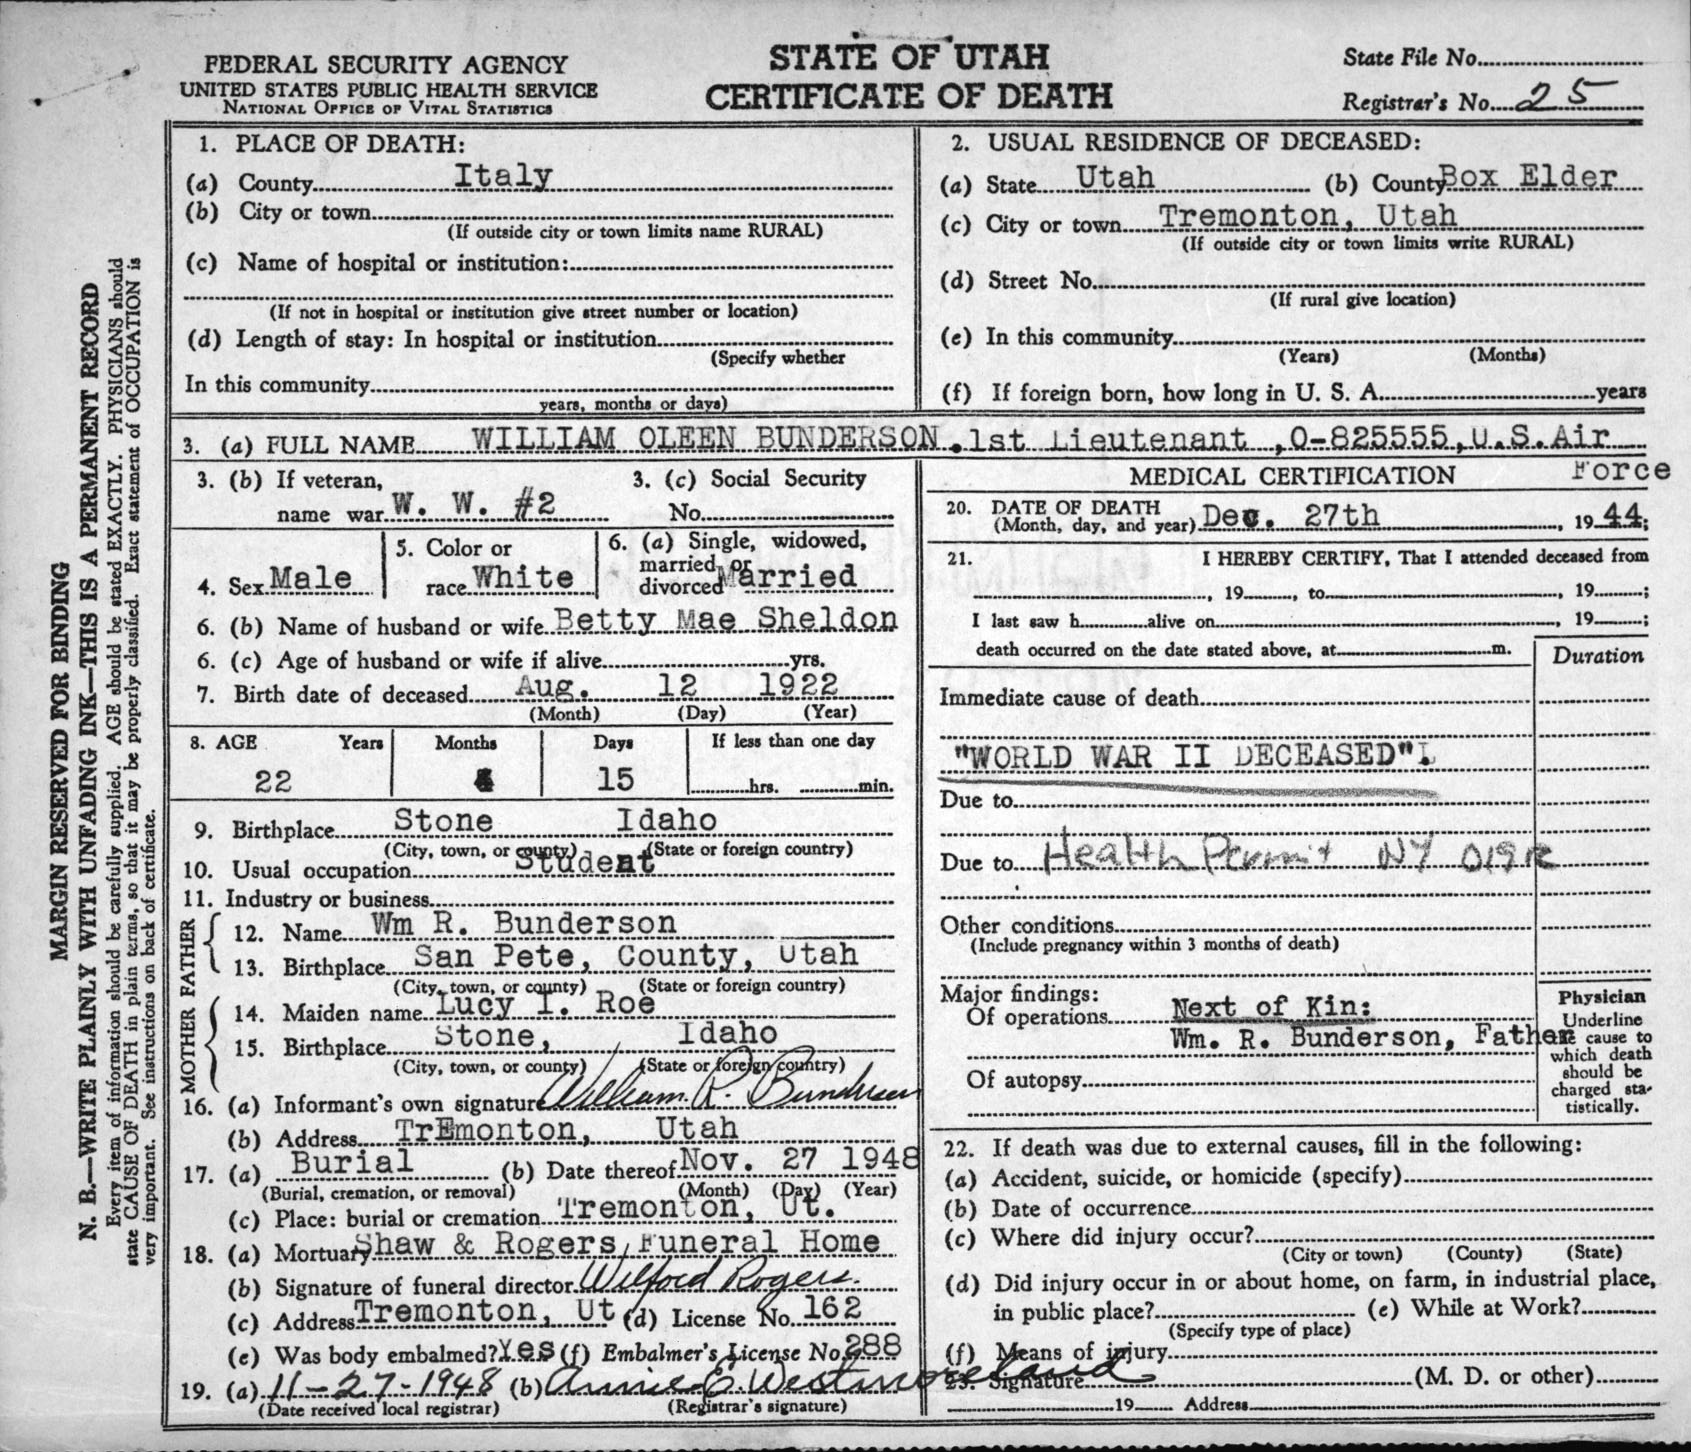 FEDERAL SECURITY AGENCY
UNITED STATES PUBLIC HEALTH SERVICE
NATIONAL OFFICE OF VITAL STATISTICS
STATE OF UTAH
CERTIFICATE OF DEATH
State File No.
Registrar's No. 25
MARGIN RESERVED FOR BINDING
N. B.—WRITE PLAINLY WITH UNFADING INK—THIS IS A PERMANENT RECORD
Every item of information should be carefully supplied. AGE should be stated EXACTLY. PHYSICIANS should
state CAUSE OF DEATH in plain terms, so that it may be properly classified. Exact statement of OCCUPATION is
very important. See instructions on back of certificate.
1. PLACE OF DEATH:
(a) County Italy
(b) City or town
(If outside city or town limits name RURAL)
(c) Name of hospital or institution:
(If not in hospital or institution give street number or location)
(d) Length of stay: In hospital or institution
(Specify whether
In this community
years, months or days)
2. USUAL RESIDENCE OF DECEASED:
(a) State Utah (b) County Box Elder
(c) City or town Tremonton, Utah
(If outside city or town limits write RURAL)
(d) Street No.
(If rural give location)
(e) In this community
(Years) (Months)
(f) If foreign born, how long in U. S. A. years
3. (a) FULL NAME WILLIAM OLEEN BUNDERSON ,1st Lieutenant ,O-825555,U.S.Air
Force
3. (b) If veteran,
name war W. W. #2
3. (c) Social Security
No.
4. Sex Male
5. Color or
race White
6. (a) Single, widowed,
married, or
divorced Married
6. (b) Name of husband or wife Betty Mae Sheldon
6. (c) Age of husband or wife if alive yrs.
7. Birth date of deceased Aug. 12 1922
(Month) (Day) (Year)
8. AGE Years Months Days If less than one day
22 4 15 hrs. min.
9. Birthplace Stone Idaho
(City, town, or county) (State or foreign country)
10. Usual occupation Student
11. Industry or business
FATHER
12. Name Wm R. Bunderson
13. Birthplace San Pete, County, Utah
(City, town, or county) (State or foreign country)
MOTHER
14. Maiden name Lucy I. Roe
15. Birthplace Stone, Idaho
(City, town, or county) (State or foreign country)
16. (a) Informant's own signature William R. Bunderson
(b) Address TrEmonton, Utah
17. (a) Burial (b) Date thereof Nov. 27 1948
(Burial, cremation, or removal) (Month) (Day) (Year)
(c) Place: burial or cremation Tremonton, Ut.
18. (a) Mortuary Shaw & Rogers Funeral Home
(b) Signature of funeral director Wilford Rogers
(c) Address Tremonton, Ut (d) License No. 162
(e) Was body embalmed? Yes (f) Embalmer's License No. 288
19. (a) 11-27-1948 (b) Annie E. Westmoreland
(Date received local registrar) (Registrar's signature)
MEDICAL CERTIFICATION
20. DATE OF DEATH
(Month, day, and year) Dec. 27th , 19 44;
21. I HEREBY CERTIFY, That I attended deceased from
, 19 , to , 19 ;
I last saw h alive on , 19 ;
death occurred on the date stated above, at m.
Duration
Immediate cause of death
"WORLD WAR II DECEASED".
Due to
Due to Health Permit NY
Other conditions
(Include pregnancy within 3 months of death)
Major findings:
Of operations Next of Kin:
Wm. R. Bunderson, Father
Of autopsy
Physician
Underline
the cause to
which death
should be
charged sta-
tistically.
22. If death was due to external causes, fill in the following:
(a) Accident, suicide, or homicide (specify)
(b) Date of occurrence
(c) Where did injury occur?
(City or town) (County) (State)
(d) Did injury occur in or about home, on farm, in industrial place,
in public place? (e) While at Work?
(Specify type of place)
(f) Means of injury
23. Signature (M. D. or other)
19 Address